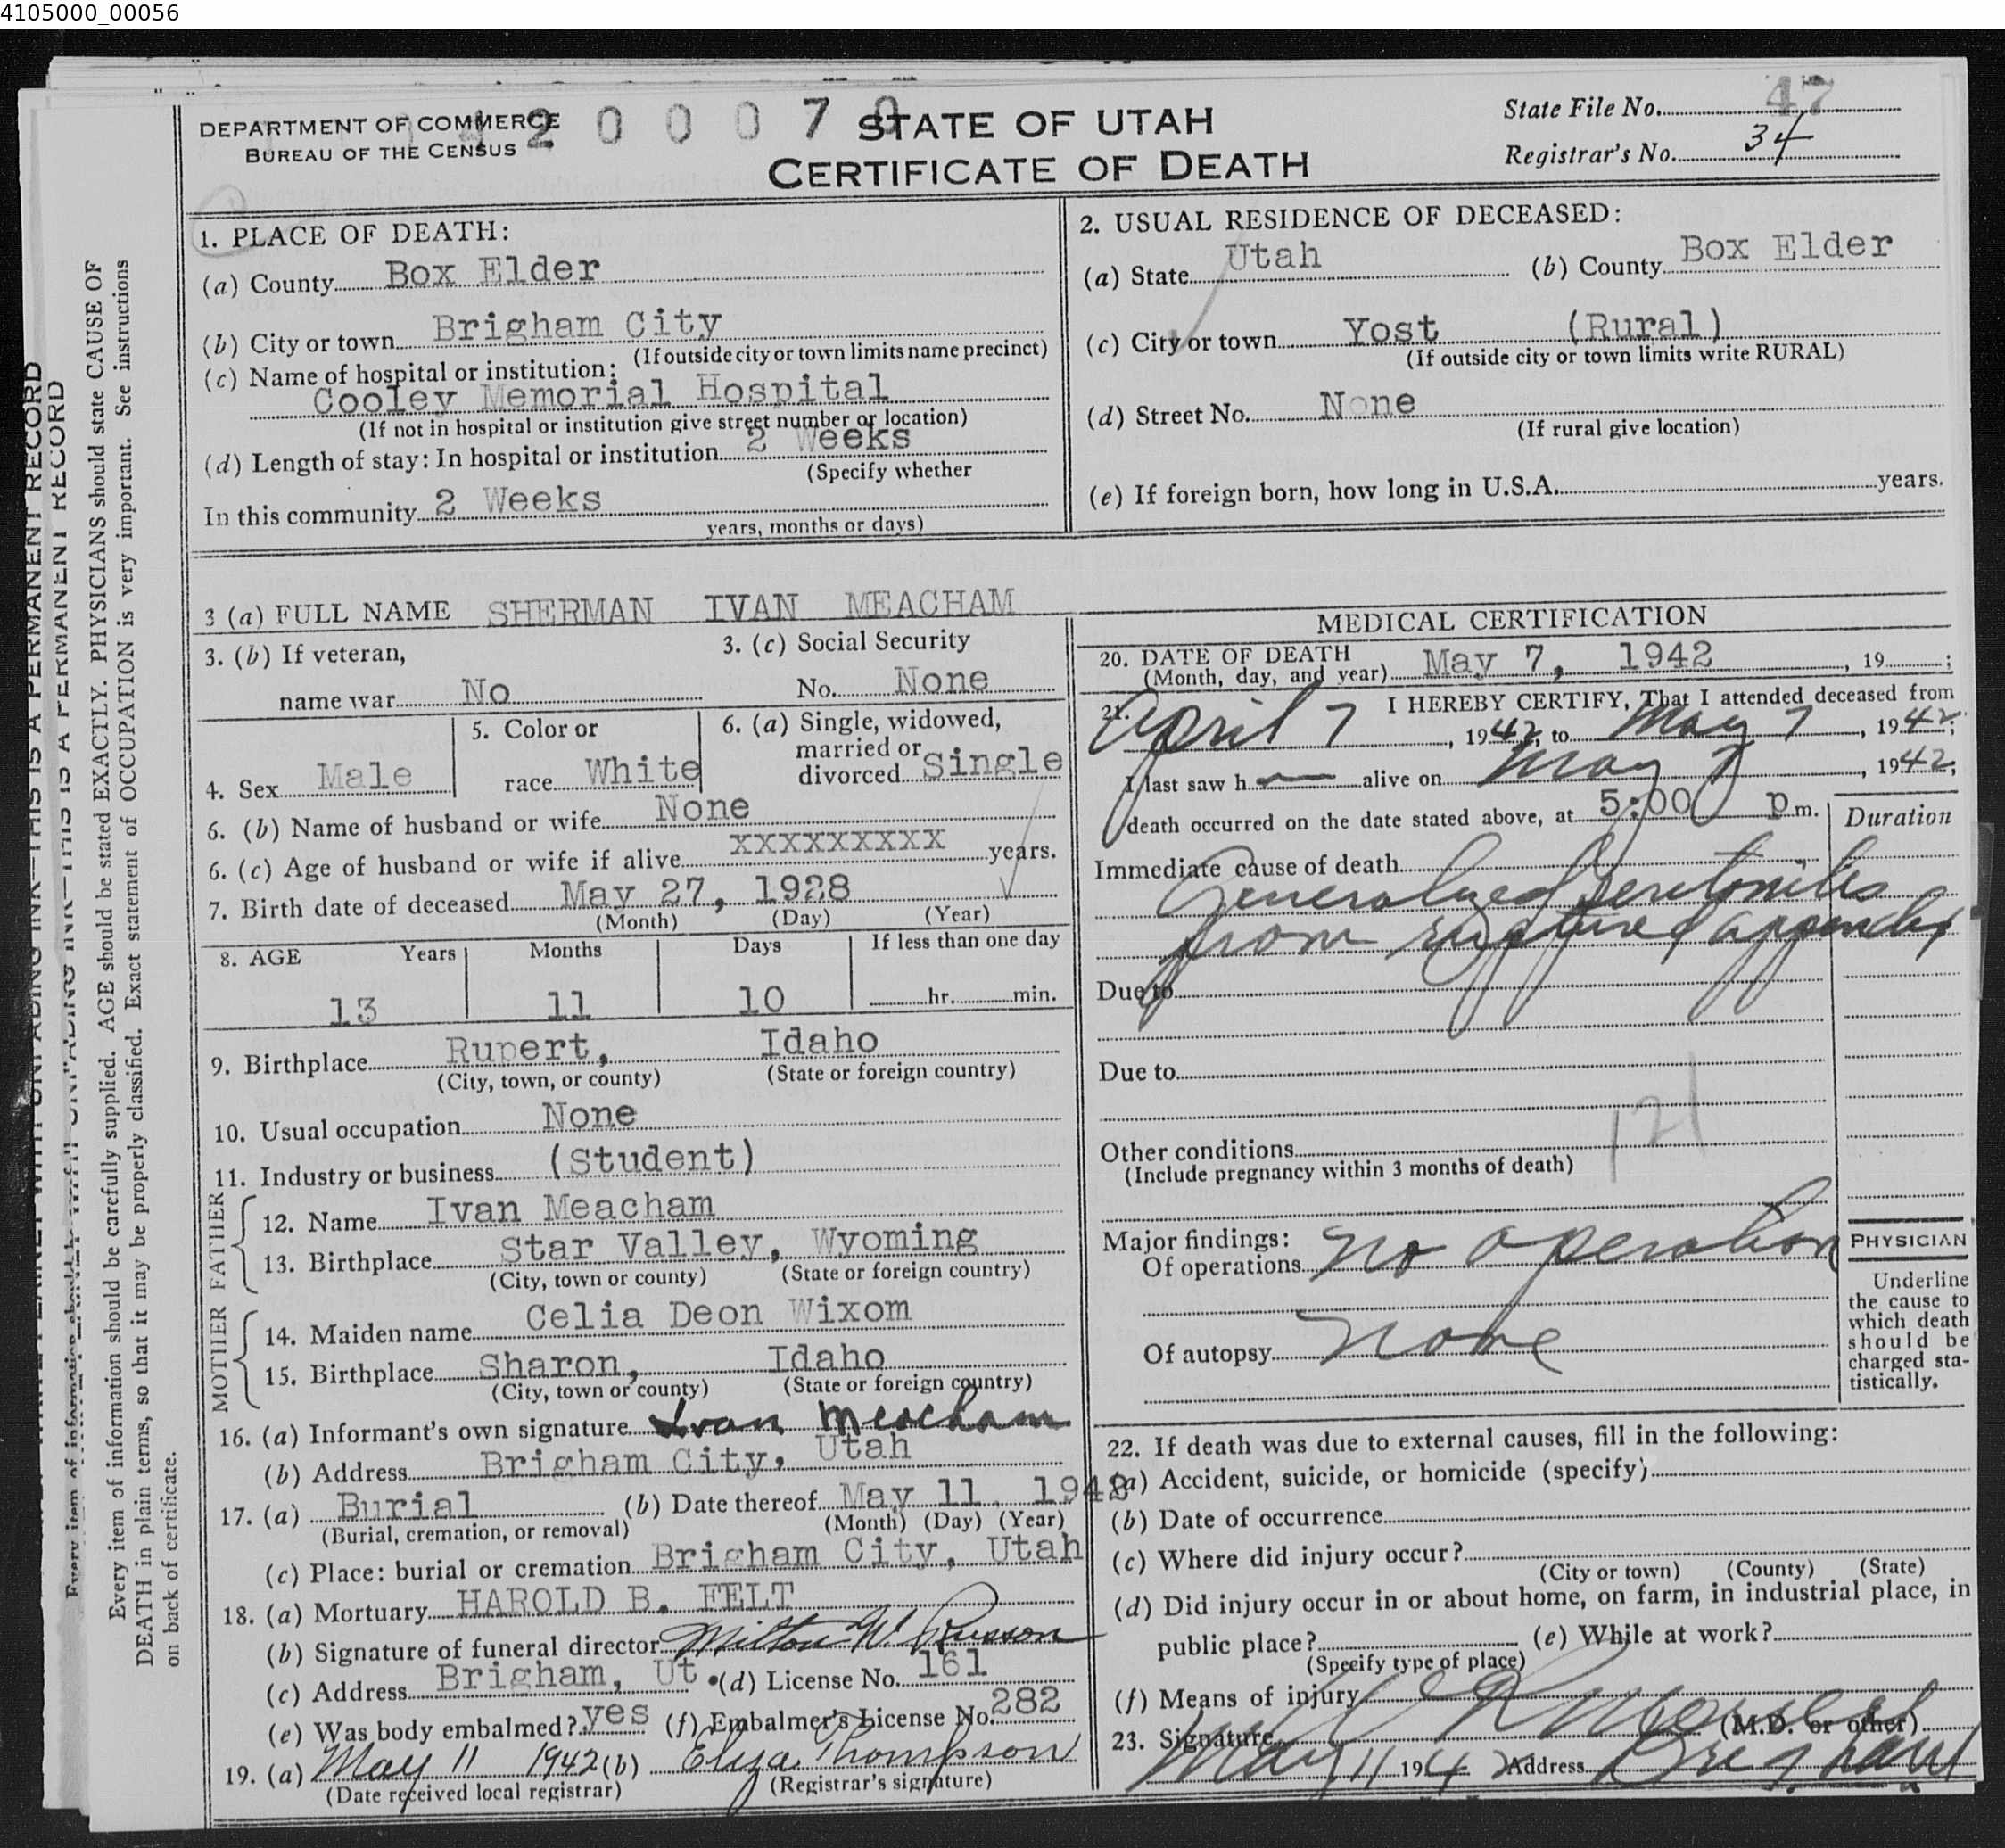 4105000_00056
DEPARTMENT OF COMMERCE
BUREAU OF THE CENSUS
2 0 0 0 7 0
STATE OF UTAH
CERTIFICATE OF DEATH
State File No. 47
Registrar's No. 34
1. PLACE OF DEATH:
(a) County Box Elder
(b) City or town Brigham City
(If outside city or town limits name precinct)
(c) Name of hospital or institution:
Cooley Memorial Hospital
(If not in hospital or institution give street number or location)
(d) Length of stay: In hospital or institution 2 Weeks
(Specify whether
In this community 2 Weeks
years, months or days)
2. USUAL RESIDENCE OF DECEASED:
(a) State Utah (b) County Box Elder
(c) City or town Yost (Rural)
(If outside city or town limits write RURAL)
(d) Street No. None
(If rural give location)
(e) If foreign born, how long in U.S.A. years.
3 (a) FULL NAME SHERMAN IVAN MEACHAM
3. (b) If veteran,
name war No
3. (c) Social Security
No. None
4. Sex Male
5. Color or
race White
6. (a) Single, widowed,
married or
divorced Single
6. (b) Name of husband or wife None
6. (c) Age of husband or wife if alive xxxxxxxxx years.
7. Birth date of deceased May 27, 1928
(Month) (Day) (Year)
8. AGE Years Months Days If less than one day
13 11 10 hr. min.
9. Birthplace Rupert, Idaho
(City, town, or county) (State or foreign country)
10. Usual occupation None
11. Industry or business (Student)
FATHER
12. Name Ivan Meacham
13. Birthplace Star Valley, Wyoming
(City, town or county) (State or foreign country)
MOTHER
14. Maiden name Celia Deon Wixom
15. Birthplace Sharon, Idaho
(City, town or county) (State or foreign country)
16. (a) Informant's own signature Ivan Meacham
(b) Address Brigham City, Utah
17. (a) Burial (b) Date thereof May 11, 1942
(Burial, cremation, or removal) (Month) (Day) (Year)
(c) Place: burial or cremation Brigham City, Utah
18. (a) Mortuary HAROLD B. FELT
(b) Signature of funeral director Milton W. Russon
(c) Address Brigham, Ut. (d) License No. 161
(e) Was body embalmed? yes (f) Embalmer's License No. 282
19. (a) May 11 1942 (b) Eliza Thompson
(Date received local registrar) (Registrar's signature)
MEDICAL CERTIFICATION
20. DATE OF DEATH
(Month, day, and year) May 7, 1942, 19 ;
21. I HEREBY CERTIFY, That I attended deceased from
April 7, 1942, to May 7, 1942;
I last saw h alive on May 7, 1942,
death occurred on the date stated above, at 5:00 p m.
Duration
Immediate cause of death
Generalized Peritonitis
from ruptured appendix
Due to
Due to
121
Other conditions
(Include pregnancy within 3 months of death)
Major findings:
Of operations No operation
Of autopsy None
PHYSICIAN
Underline
the cause to
which death
should be
charged sta-
tistically.
22. If death was due to external causes, fill in the following:
(a) Accident, suicide, or homicide (specify)
(b) Date of occurrence
(c) Where did injury occur?
(City or town) (County) (State)
(d) Did injury occur in or about home, on farm, in industrial place, in
public place? (e) While at work?
(Specify type of place)
(f) Means of injury
23. Signature (M.D. or other)
May 11 1942 Address Brigham
Every item of information should be carefully supplied. AGE should be stated EXACTLY. PHYSICIANS should state CAUSE OF
DEATH in plain terms, so that it may be properly classified. Exact statement of OCCUPATION is very important. See instructions
on back of certificate.